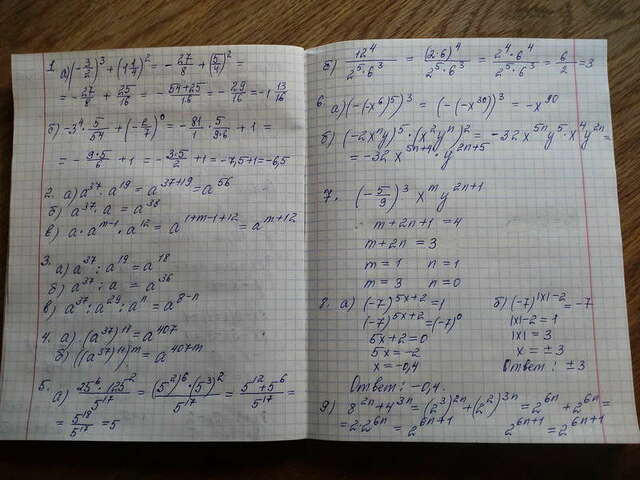 1. а) (-3/2)^3 + (1 1/4)^2 = -27/8 + (5/4)^2 =
= -27/8 + 25/16 = -54+25/16 = -29/16 = -1 13/16
б) -3^4 · 5/54 + (-2/7)^0 = -81/1 · 5/9·6 + 1 =
= -9·5/6 + 1 = -3·5/2 + 1 = -7,5+1 = -6,5
2. а) a^37 · a^19 = a^37+19 = a^56
б) a^37 · a = a^38
в) a · a^m-1 · a^12 = a^1+m-1+12 = a^m+12
3. а) a^37 : a^19 = a^18
б) a^37 : a = a^36
в) a^37 : a^29 : a^n = a^8-n
4. а) (a^37)^11 = a^407
б) ((a^37)^11)^m = a^407m
5. а) 25^6 · 125^2/5^17 = (5^2)^6 · (5^3)^2/5^17 = 5^12 + 5^6/5^17 =
= 5^18/5^17 = 5
б) 12^4/2^5·6^3 = (2·6)^4/2^5·6^3 = 2^4·6^4/2^5·6^3 = 6/2 = 3
6. а) (-(-x^6)^5)^3 = (-(-x^30))^3 = -x^90
б) (-2x^n y)^5 · (x^2 y^n)^2 = -32x^5n y^5 · x^4 y^2n =
= -32x^5n+4 · y^2n+5
7. (-5/9)^3 x^m y^2n+1
m+2n+1 = 4
m+2n = 3
m = 1 n = 1
m = 3 n = 0
8. а) (-7)^5x+2 = 1
(-7)^5x+2 = (-7)^0
5x+2 = 0
5x = -2
x = -0,4
Ответ: -0,4.
б) (-7)^|x|-2 = -7
|x|-2 = 1
|x| = 3
x = ±3
Ответ: ±3
9) 8^2n + 4^3n = (2^3)^2n + (2^2)^3n = 2^6n + 2^6n =
= 2·2^6n = 2^6n+1 2^6n+1 = 2^6n+1